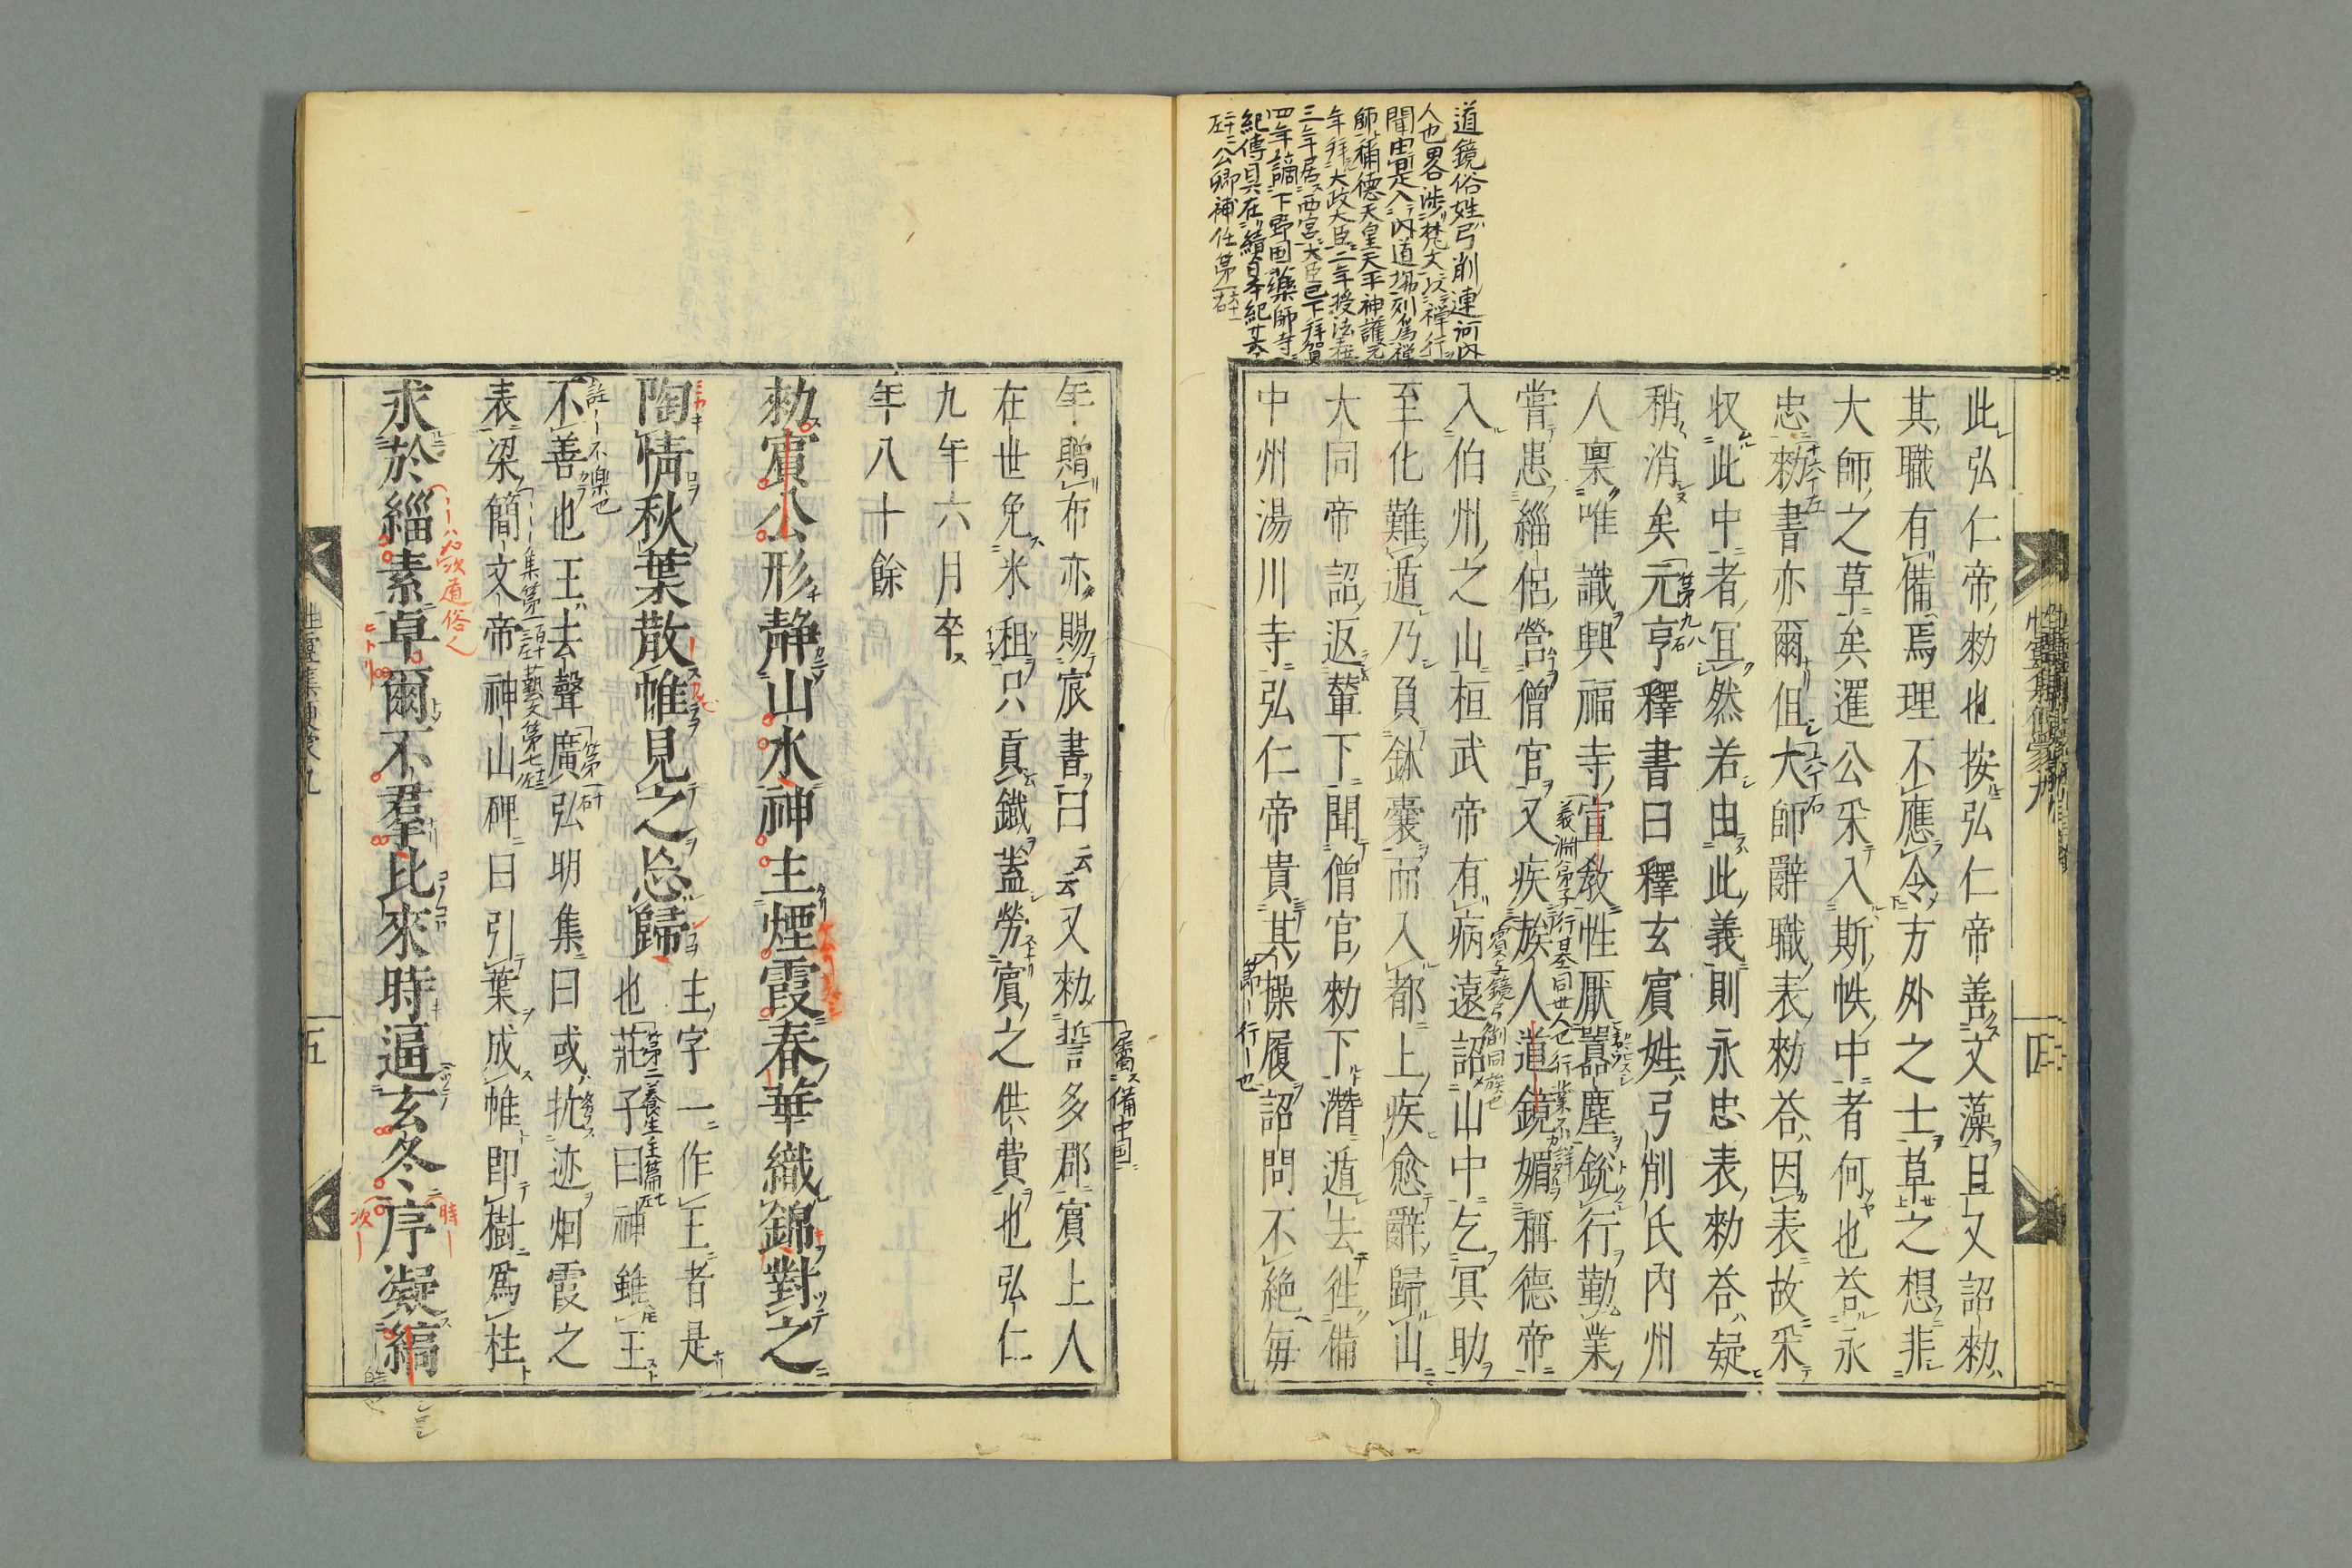 道鏡俗姓弓削連河内
人也畧渉梵文以禅行
聞由是入内道場列爲禅
師稱德天皇天平神護元
年拜大政大臣二年授法王
三年居西宮大臣已下拜賀
四年謫下野国藥師寺
紀傳具在續日本紀
公卿補任第一
此弘仁帝勅也按弘仁帝善文藻且又詔勅
其職有備焉理不應令方外之士草之想非
大師之草矣暹公釆入斯帙中者何也荅永
忠勅書亦爾但大師辭職表勅荅因表故釆
收此中者冝然若由此義則永忠表勅荅疑
稍消矣元亨釋書曰釋玄賓姓弓削氏內州
人稟唯識興福寺宣敎性厭囂塵銳行勤業
嘗患緇侶營僧官又疾族人道鏡媚稱德帝
入伯州之山桓武帝有病遠詔山中乞冥助
至化難遁乃負鉢囊而入都上疾愈辭歸山
大同帝詔返輦下聞僧官勅下潛遁去徃備
中州湯川寺弘仁帝貴其操履詔問不絶每
義淵弟子行基同世人也
賓与鏡弓削同族也
性靈集便蒙九
四
年贈布亦賜宸書曰云云又勅誓多郡賓上人
在世免米租只貢鐵蓋勞賓之供費也弘仁
九年六月卒
年八十餘
備中国
勅賓公形静山水神主煙霞春華織錦對之
陶情秋葉散帷見之忘歸
主字一作王者是
也莊子曰神雖王
第二養生主篇
不善也王去聲廣弘明集曰或抗迹烟霞之
註不樂也
表梁簡文帝神山碑曰引葉成帷即樹爲柱
求於緇素卓爾不羣比來時逼玄冬序凝縞
道俗
ヒトリ
時
次
五